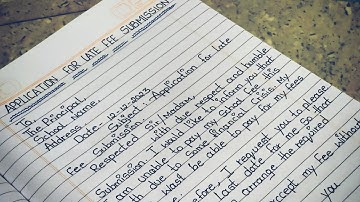 APPLICATION FOR LATE FEE SUBMISSION
To,
The Principal,
School Name,
Address
Date: 12-12-2023
Subject: Application for Late
Fee Submission.
Respected Sir/Madam,
With due respect and humble
Submission I would like to inform you that
am unable to pay my School Fee this
due to some financial Crisis. My
wasn't be able to pay for my fees
I request you to please
last date for me so that
arrange the required
accept my fee without